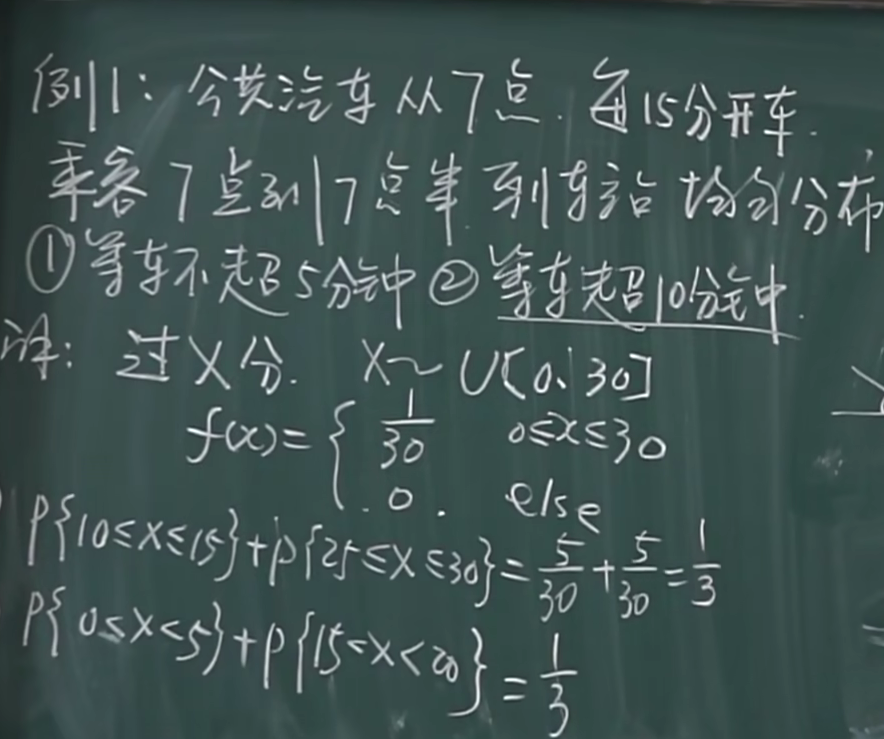 例1: 公共汽车从7点. 每15分开车.
乘客7点到7点半到车站 均匀分布
①等车不超5分钟 ②等车超10分钟.
详: 过X分. X~U[0,30]
f(x)={ 1/30 0≤x≤30
0. else
P{10≤X≤15}+P{25≤X≤30}=5/30+5/30=1/3
P{0≤X<5}+P{15<X<20}=1/3